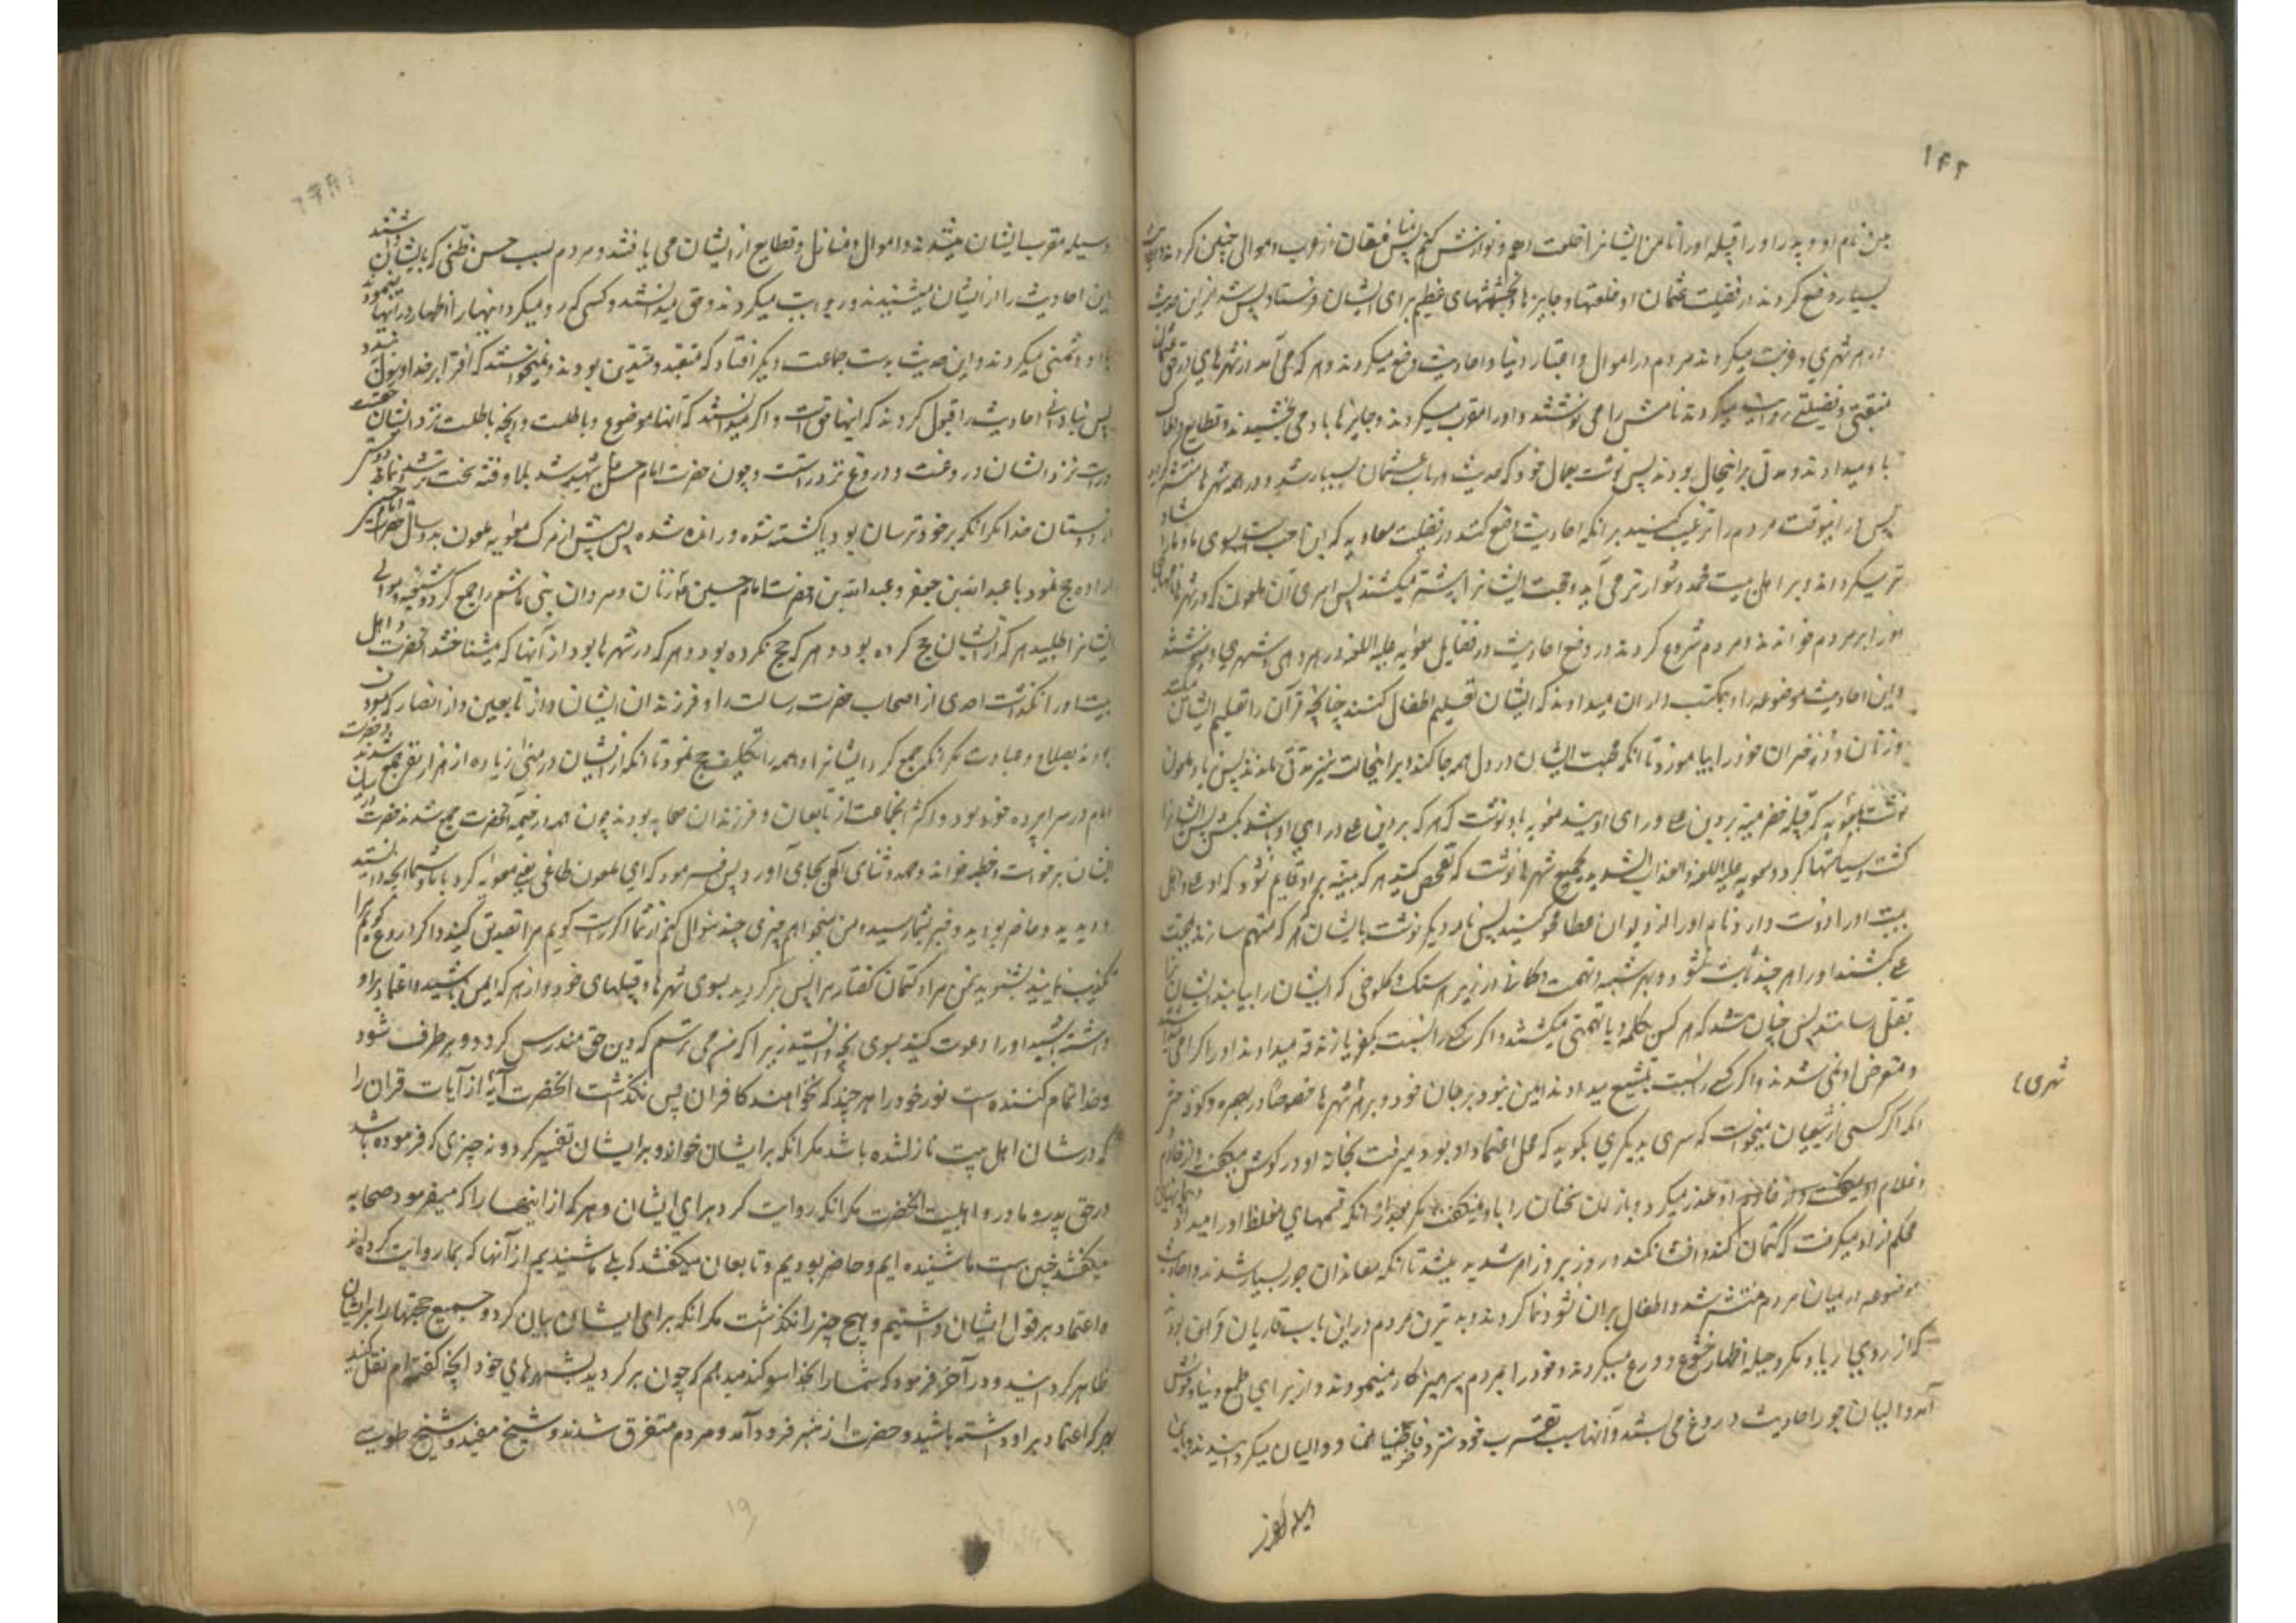 ۱۴۲
بسیار وضع کردند در فضیلت عثمان او خلعتها و جایزها و بخششهای عظیم برای ایشان فرستاد پس شد از این حدیث
در هر شهری و رغبت میکردند مردم در اموال و اعتبار دنیا و احادیث وضع میکردند و هر که می آمد از شهرهای در حق عثمان
منقبتی و فضیلتی روایت میکردند نامش را می نوشتند و او را مقرب میکردند و جایزها باو می بخشیدند و قطایع و املاک
باو میدادند و مدتی براینحال بودند پس نوشت بعمال خود که حدیث در باب عثمان بسیار شد و در همه شهرها منتشر گردید
پس در اینوقت مردم را ترغیب کنید بر انکه احادیث وضع کنند در فضیلت معاویه که این احب است بسوی ما و ما را شاد
تر میگرداند و بر اهل بیت محمد دشوارتر می آید و حجت ایشانرا بیشتر میشکند پس امرای آن ملعون که در شهرها
نامه را بر مردم خواندند و مردم شروع کردند در وضع احادیث در فضایل معویه علیه اللعنه در هر دهی و شهری
و این احادیث موضوعه را بمکتب داران میدادند که ایشان تعلیم اطفال کنند چنانچه قرآن را تعلیم ایشان میکنند
و زنان و دختران خود را بیاموزند تا انکه محبت ایشان در دل همه جا کند و براینحالت نیز مدتی ماندند پس زیاد ملعون
نوشت بمعویه که قبیله حضرمیه بر دین علی و رای اویند معویه باو نوشت که هر که بر دین علی و رای او باشد بکش پس ایشانرا
کشت و سیاستها کرد و معویه علیه اللعنه والعذاب الشدید بجمیع شهرها نوشت که تفحص کنید هر که بینه بر او قایم شود که او علی و اهل
بیت او را دوست دارد نام او را از دیوان عطا محو کنید پس نامه دیگر نوشت بایشان هر که را متهم سازند بمحبت
علی بکشند او را هر چند ثابت نشود و بهر شبهه و تهمت و گمانی از زیر هر سنگ و کلوخی که ایشان را بیابند ایشانرا
بقتل رسانند پس چنان شد که هر کس بکلمه و یا تهمتی میکشتند و اگر کسی را نسبت بکفر یا زندقه میدادند او را گرامی میداشتند
و متعرض او نمی شدند و اگر کسی را نسبت بتشیع میدادند ایمن نبود بر جان خود در هر شهرها خصوصاً در بصره و کوفه حتی
انکه اگر کسی از شیعیان میخواست که سری بدیگری بگوید که محل اعتماد او بود میرفت بخانه او و در گوشش میگفت و از خادم
محکم از او میگرفت که کتمان کند و افشا نکند و روز بروز امر شدید میشد تا انکه معاندان جور بسیار شدند و احادیث
موضوعه در میان مردم منتشر شد و اطفال بران نشو و نما کردند و بدترین مردم در این باب قاریان قرآن بودند
که از روی ریا و مکر و حیله اظهار خشوع و ورع میکردند و خود را بمردم پرهیزکار مینمودند و از برای طمع دنیا و خوش
شهری ۴
وسیله مقرب ایشان میشدند و اموال و منازل و قطایع از ایشان می یافتند و مردم بسبب حسن ظنی که بایشان داشتند
این احادیث را از ایشان میشنیدند و روایت میکردند و حق میدانستند و کسی که رد میکرد اینها را
با او دشمنی میکردند و این حدیث بدست جماعت دیگر افتاد که متعبد و متدین بودند و نمیخواستند که افترا بر خدا و رسول
پس بنادانی احادیث را قبول کردند که اینها حق است و اگر میدانستند که آنها موضوع و باطلست و آنچه باطلست نزد ایشان حقست
و راست نزد ایشان دروغست و دروغ نزد راست و چون حضرت امام حسن شهید شد بلا و فتنه سخت تر شد و نماند
از دوستان خدا مگر انکه بر خود ترسان بود یا کشته شده و رانده شده پس پیش از مرگ معویه ملعون بدو سال حضرت امام حسین
اراده حج نمود با عبدالله بن جعفر و عبدالله بن و حضرت امام حسین زنان و مردان بنی هاشم را جمع کرد و شیعه و موالی
ایشانرا طلبید هر که از ایشان حج کرده بود و هر که حج نکرده بود و هر که در شهرها بود از آنها که میشناختند آنحضرت و اهل
بیت او را نگذاشت احدی از اصحاب حضرت رسالت را و فرزندان ایشان و از تابعین و از انصار که
بودند بصلاح و عبادت مگر انکه جمع کرد ایشانرا و همه را تکلیف حج نمود تا انکه از ایشان در منی زیاده از هزار نفر جمع شدند
امام در سراپرده خود بود و اکثر انجماعت از تابعان و فرزندان صحابه بودند چون همه در خیمه آنحضرت جمع شدند حضرت
ایشان برخواست و خطبه خواند و حمد و ثنای الهی بجای آورد پس فرمود که ای ملعون طاغی یعنی معویه کرد با ما و شما آنچه دانستید
و دیدید و حاضر بودید و خبر بشما رسید و من میخواهم چیزی چند سؤال کنم از شما اگر راست گویم مرا تصدیق کنید و اگر دروغ گویم مرا
تکذیب نمایید بشنوید سخن مرا و کتمان گفتار مرا پس برگردید بسوی شهرها و قبیلهای خود و از هر که ایمن باشید و اعتماد بر او
داشته باشید او را دعوت کنید بسوی آنچه دانستید زیرا که من می ترسم که دین حق مندرس گردد و بر طرف شود
و خدا تمام کننده است نور خود را هر چند که نخواهند کافران پس نگذاشت آنحضرت آیۀ از آیات قران را
که در شان اهل بیت نازلشده باشد مگر انکه بر ایشان خواند و بر ایشان تفسیر کرد و نه چیزی که فرموده باشد
در حق پدر و مادر و اهلبیت آنحضرت مگر انکه روایت کرد برای ایشان و هر که از اینها را که میفرمود صحابه
میگفتند چنین است ما شنیده ایم و حاضر بودیم و تابعان میگفتند که بلی ما شنیدیم از آنها که بما روایت کرده اند
و اعتماد بر قول ایشان داشتیم و هیچ چیز را نگذاشت مگر انکه برای ایشان بیان کرد و جمیع حجتها را بر ایشان
ظاهر گردانید و در آخر فرمود که شما را بخدا سوگند میدهم که چون برگردید بشهرهای خود آنچه گفته ام نقل کنید
بهر که اعتماد بر او داشته باشید و حضرت از منبر فرود آمد و مردم متفرق شدند و شیخ مفید و شیخ طوسی
۱۹